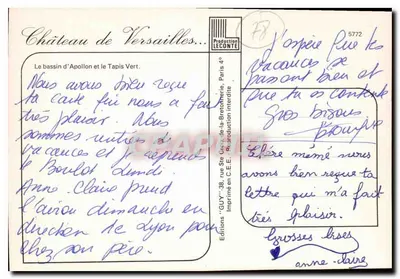 Château de Versailles...
Le bassin d'Apollon et le Tapis Vert.
Nous avons bien reçu
ta carte qui nous a fait
très plaisir. Nous
sommes rentrés de
vacances et je reprends
le Boulot Lundi.
Anne Claire prend
l'avion dimanche en
direction de Lyon pour
chez son père.
Production
LECONTE
Editions "GUY" -38, rue Ste Croix-de-la-Bretonnerie, Paris 4°
Imprimé en C.E.E. - Reproduction interdite
5772
J'espère que tes
vacances se
passent bien et
que tu es contente
Gros bisous
Chère mémé nous
avons bien reçu ta
lettre qui m'a fait
très plaisir.
Grosses bises
anne-claire